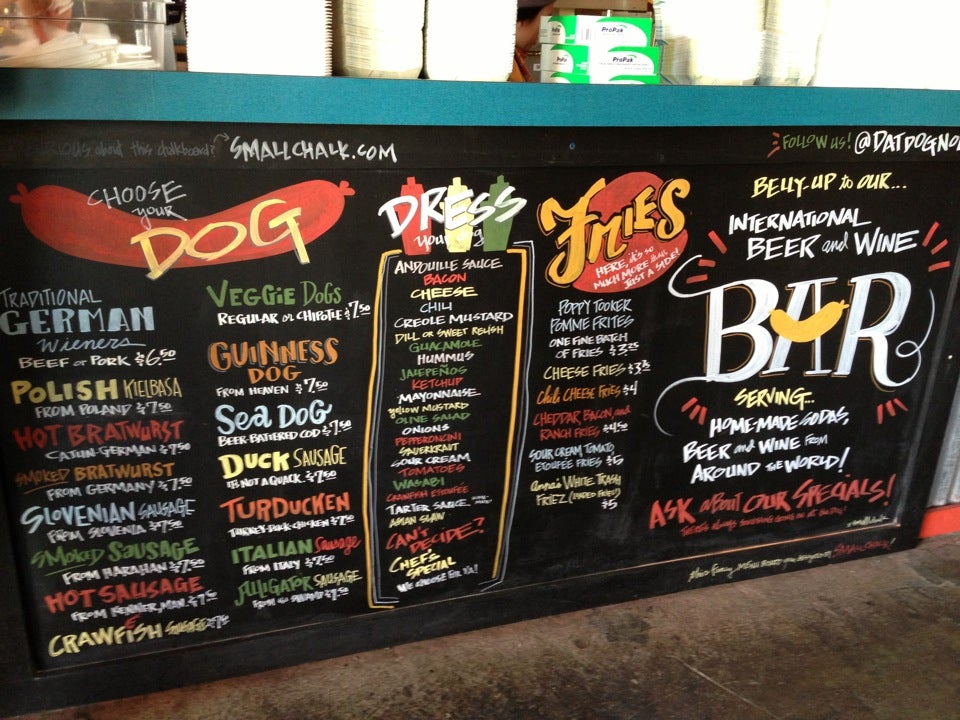 ProPak
ProPak
about this chalkboard?
SMALLCHALK.COM
FOLLOW US! @DATDOGNO
CHOOSE
YOUR
DOG
TRADITIONAL
GERMAN
Wieners
BEEF or PORK $6.50
POLISH KIELBASA
FROM POLAND $7.50
HOT BRATWURST
CAJUN-GERMAN $7.50
SMOKED BRATWURST
FROM GERMANY $7.50
SLOVENIAN SAUSAGE
FROM SLOVENIA $7.50
SMOKED SAUSAGE
FROM HARAHAN $7.50
HOT SAUSAGE
FROM KENNER, MAN. $7.50
CRAWFISH SAUSAGE $7.50
VEGGIE DOGS
REGULAR or CHIPOTLE $7.50
GUINNESS
DOG
FROM HEAVEN $7.50
SEA DOG
BEER-BATTERED COD $7.50
DUCK SAUSAGE
IS NOT A QUACK $7.50
TURDUCKEN
TURKEY-DUCK-CHICKEN $7.50
ITALIAN SAUSAGE
FROM ITALY $7.50
ALLIGATOR SAUSAGE
FROM SWAMP $7.50
DRESS
your dog
ANDOUILLE SAUCE
BACON
CHEESE
CHILI
CREOLE MUSTARD
DILL or SWEET RELISH
GUACAMOLE
HUMMUS
JALEPEÑOS
KETCHUP
MAYONNAISE
YELLOW MUSTARD
OLIVE SALAD
ONIONS
PEPPERONCINI
SAUERKRAUT
SOUR CREAM
TOMATOES
WASABI
CRAWFISH ETOUFÉE
TARTER SAUCE
ASIAN SLAW
CAN'T
DECIDE?
CHEF'S
SPECIAL
WE CHOOSE FOR YA!
FRIES
HERE, it's so
MUCH MORE than
JUST A SIDE!
POPPY TOOKER
POMME FRITES
ONE FINE BATCH
OF FRIES $3.25
CHEESE FRIES $3.75
Chili CHEESE FRIES $4
CHEDDAR, BACON, and
RANCH FRIES $4.50
SOUR CREAM, TOMATO,
ETOUFEE FRIES $5
Anna's WHITE TRASH
FRIEZ (HARD FRIED)
$5
BELLY-UP to OUR...
INTERNATIONAL
BEER and WINE
BAR
SERVING...
HOME-MADE SODAS,
BEER and WINE FROM
AROUND the WORLD!
ASK about OUR SPECIALS!
THERE'S always something going on at the Dog!
MENU BOARD
SMALLCHALK!